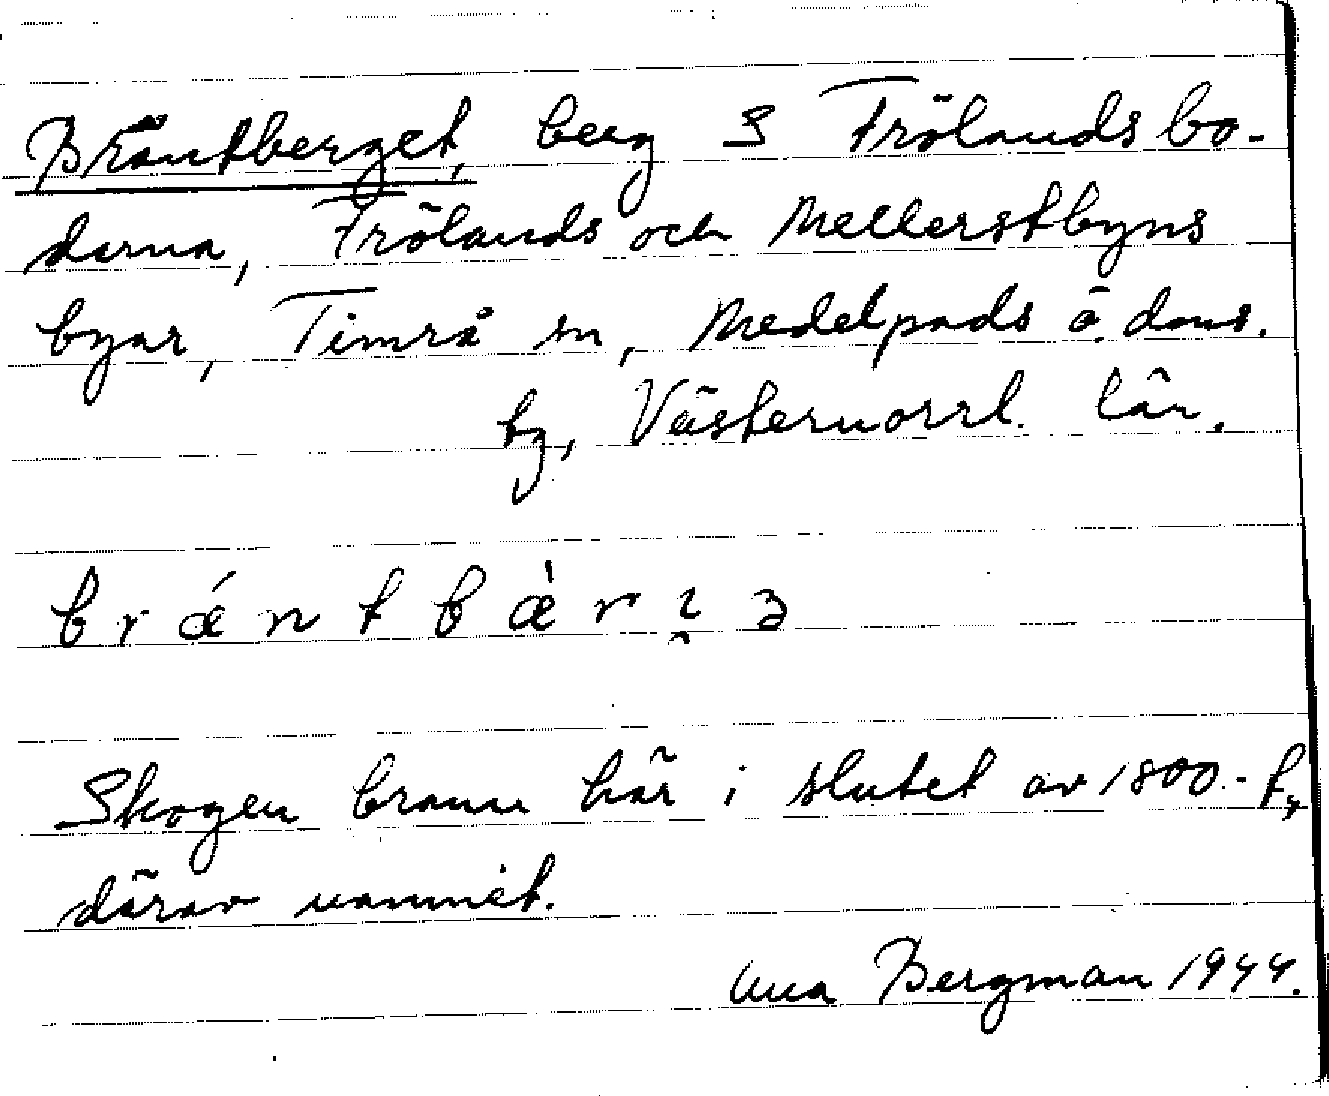 Bräntberget, berg S Frölandsbo-
darna, Frölands och Mellerstbyns
byar, Timrå sn, Medelpads ö. doms.
by, Västernorrl. län.
b r ǽ n t b æ̀ r ɿ̯ ə
Skogen brann här i slutet av 1800-t.,
därav namnet.
Bergman 1944.